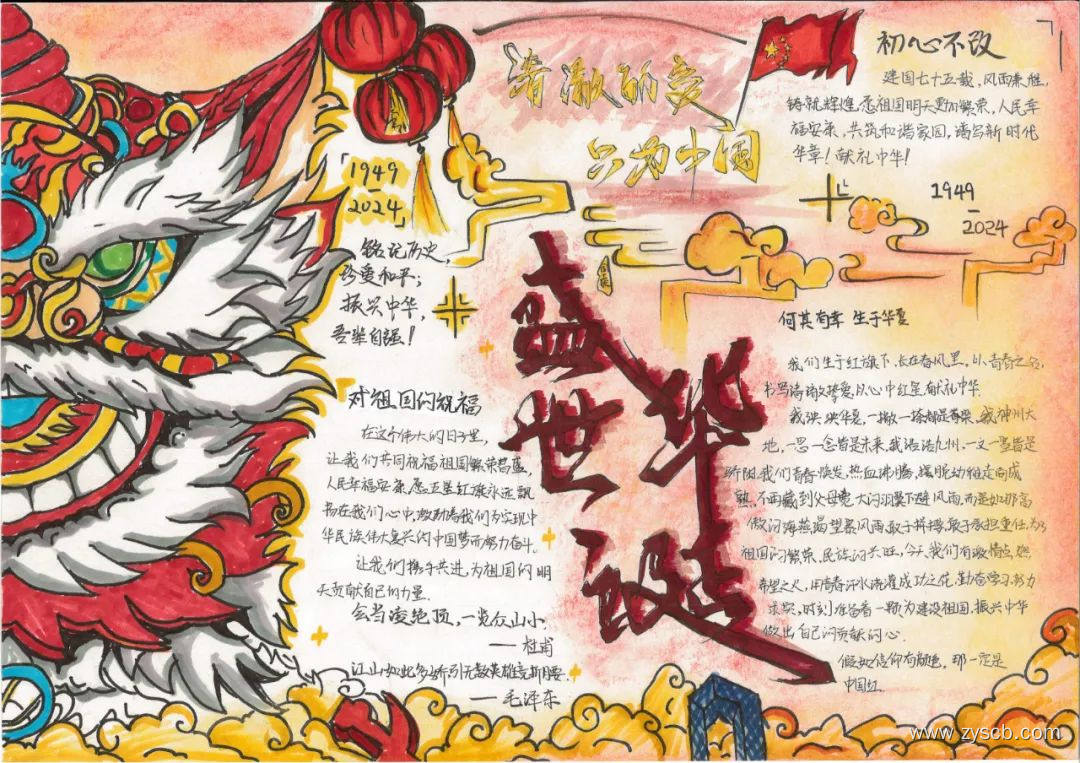 清澈的爱
只为中国
「1949
—
2024」
铭记历史，
珍爱和平；
振兴中华，
吾辈自强！
对祖国的祝福
在这个伟大的日子里，
让我们共同祝福祖国繁荣昌盛，
人民幸福安康，愿五星红旗永远飘
扬在我们心中，激励着我们为实现中
华民族伟大复兴的中国梦而努力奋斗.
让我们携手共进，为祖国的明
天贡献自己的力量.
会当凌绝顶，一览众山小.
——杜甫
江山如此多娇引无数英雄竞折腰.
—毛泽东
盛世
华诞
初心不改
建国七十五载，风雨兼程，
铸就辉煌，愿祖国明天更加繁荣，人民幸
福安康，共筑和谐家园，谱写新时代
华章！献礼中华！
1949
—
2024
何其有幸 生于华夏
我们生于红旗下，长在春风里，以青春之名，
书写清澈挚爱，以心中红星，献礼中华.
我泱泱华夏，一撇一捺都是脊梁，我神州大
地，一思一念皆是未来，我浩浩九州，一文一墨皆是
骄阳，我们青春焕发，热血沸腾，摆脱幼稚走向成
熟，不再藏到父母宽大的羽翼下避风雨，而是如那高
傲的海燕渴望暴风雨，敢于拼搏，敢于承担重任，为了
祖国的繁荣、民族的兴旺，今天，我们有激情
希望之火，用青春汗水浇灌成功之花，勤奋学习，努力
求实，时刻准备着一颗为建设祖国，振兴中华
做出自己的贡献的心.
假如信仰有颜色，那一定是
中国红.
www.zyscb.com